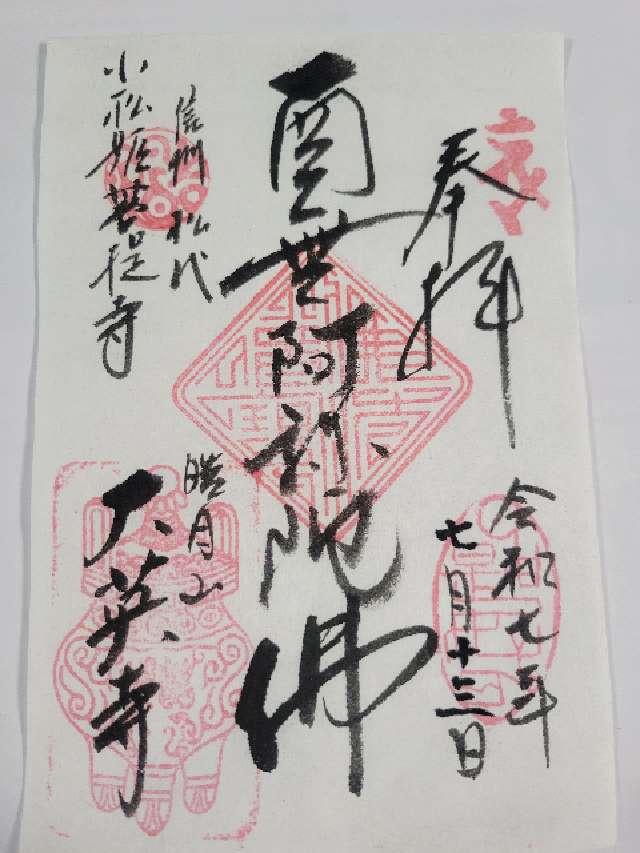 奉拝
令和七年
七月十三日
南無阿弥陀佛
信州 松代
小松姫菩提寺
皓月山
大英寺